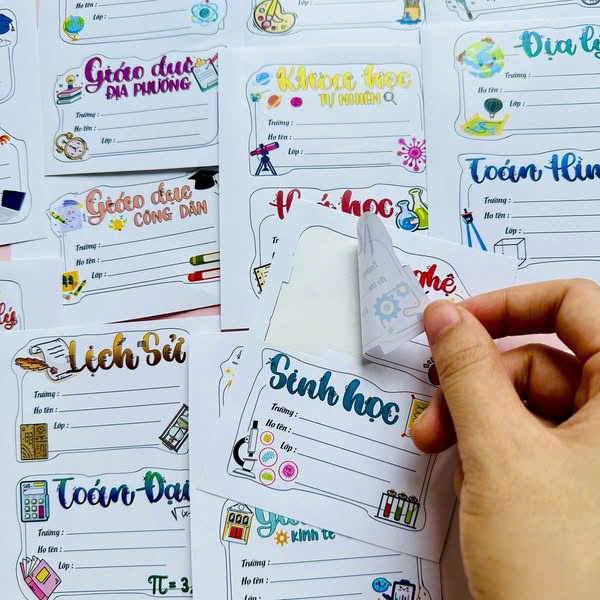 Giáo dục
ĐỊA PHƯƠNG
Trường :
Họ tên :
Lớp :
Khoa học
TỰ NHIÊN
Trường :
Họ tên :
Lớp :
Địa lý
Trường :
Họ tên :
Lớp :
Giáo dục
CÔNG DÂN
Trường :
Họ tên :
Lớp :
học
Toán Hìn
Trường :
Họ tên :
Lớp :
nghệ
Lịch Sử
Trường :
Họ tên :
Lớp :
Sinh học
Trường :
Họ tên :
Lớp :
Toán Đại
√(x-
Trường :
Họ tên :
Lớp :
π = 3,
Kinh tế
Trường :
Họ tên :
Lớp :